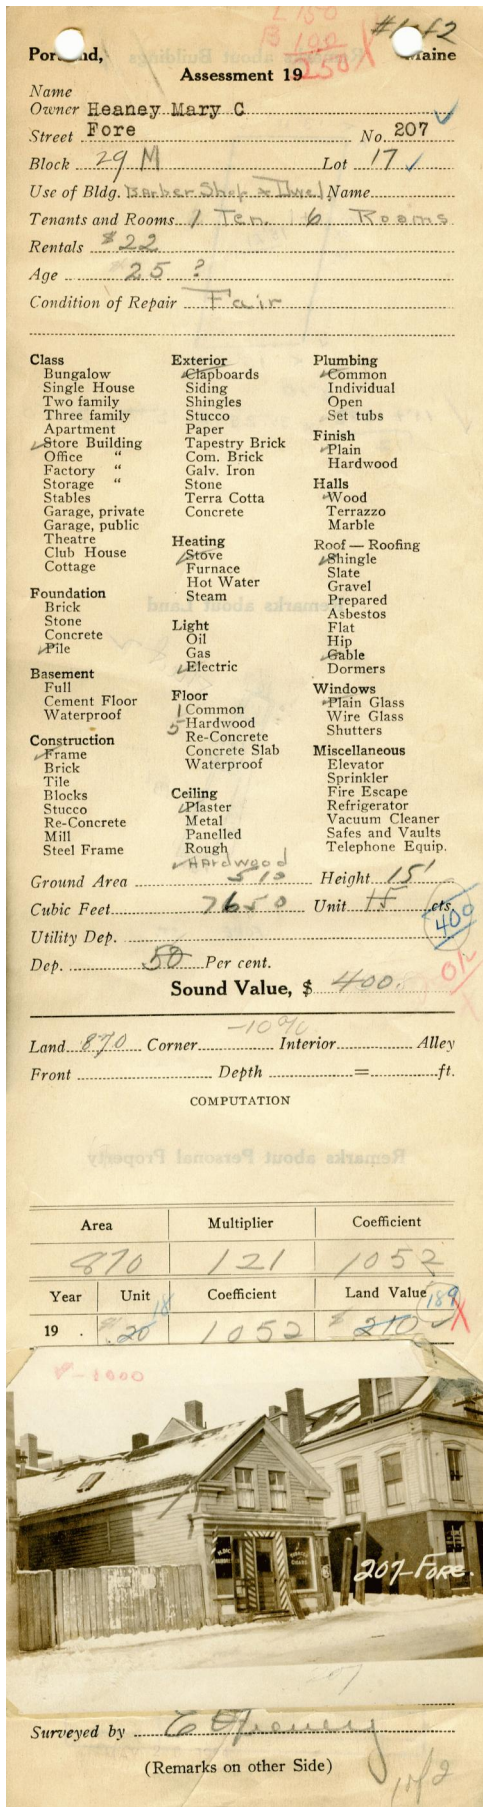 #1 of 2
L 150
B 100
250
Portland, Maine
Assessment 19
Name
Owner Heaney Mary C
Street Fore No. 207
Block 29 M Lot 17
Use of Bldg. Barber Shop & Dwel Name
Tenants and Rooms 1 Ten. 6 Rooms
Rentals $22
Age 25 ?
Condition of Repair Fair
Class
Bungalow
Single House
Two family
Three family
Apartment
Store Building
Office "
Factory "
Storage "
Stables
Garage, private
Garage, public
Theatre
Club House
Cottage
Foundation
Brick
Stone
Concrete
Pile
Basement
Full
Cement Floor
Waterproof
Construction
Frame
Brick
Tile
Blocks
Stucco
Re-Concrete
Mill
Steel Frame
Exterior
Clapboards
Siding
Shingles
Stucco
Paper
Tapestry Brick
Com. Brick
Galv. Iron
Stone
Terra Cotta
Concrete
Heating
Stove
Furnace
Hot Water
Steam
Light
Oil
Gas
Electric
Floor
1 Common
5 Hardwood
Re-Concrete
Concrete Slab
Waterproof
Ceiling
Plaster
Metal
Panelled
Rough
Hardwood
Plumbing
Common
Individual
Open
Set tubs
Finish
Plain
Hardwood
Halls
Wood
Terrazzo
Marble
Roof — Roofing
Shingle
Slate
Gravel
Prepared
Asbestos
Flat
Hip
Gable
Dormers
Windows
Plain Glass
Wire Glass
Shutters
Miscellaneous
Elevator
Sprinkler
Fire Escape
Refrigerator
Vacuum Cleaner
Safes and Vaults
Telephone Equip.
Ground Area 510 Height 15'
Cubic Feet 7650 Unit 15 cts.
400
Utility Dep.
Dep. 50 Per cent.
Sound Value, $ 400.
-10%
Land 870 Corner Interior Alley
Front Depth = ft.
COMPUTATION
Area Multiplier Coefficient
870 121 1052
Year Unit Coefficient Land Value 189
19 . 18 $ .20 1052 $ 210
-1000
207-Fore.
Surveyed by
(Remarks on other Side)
1 of 2